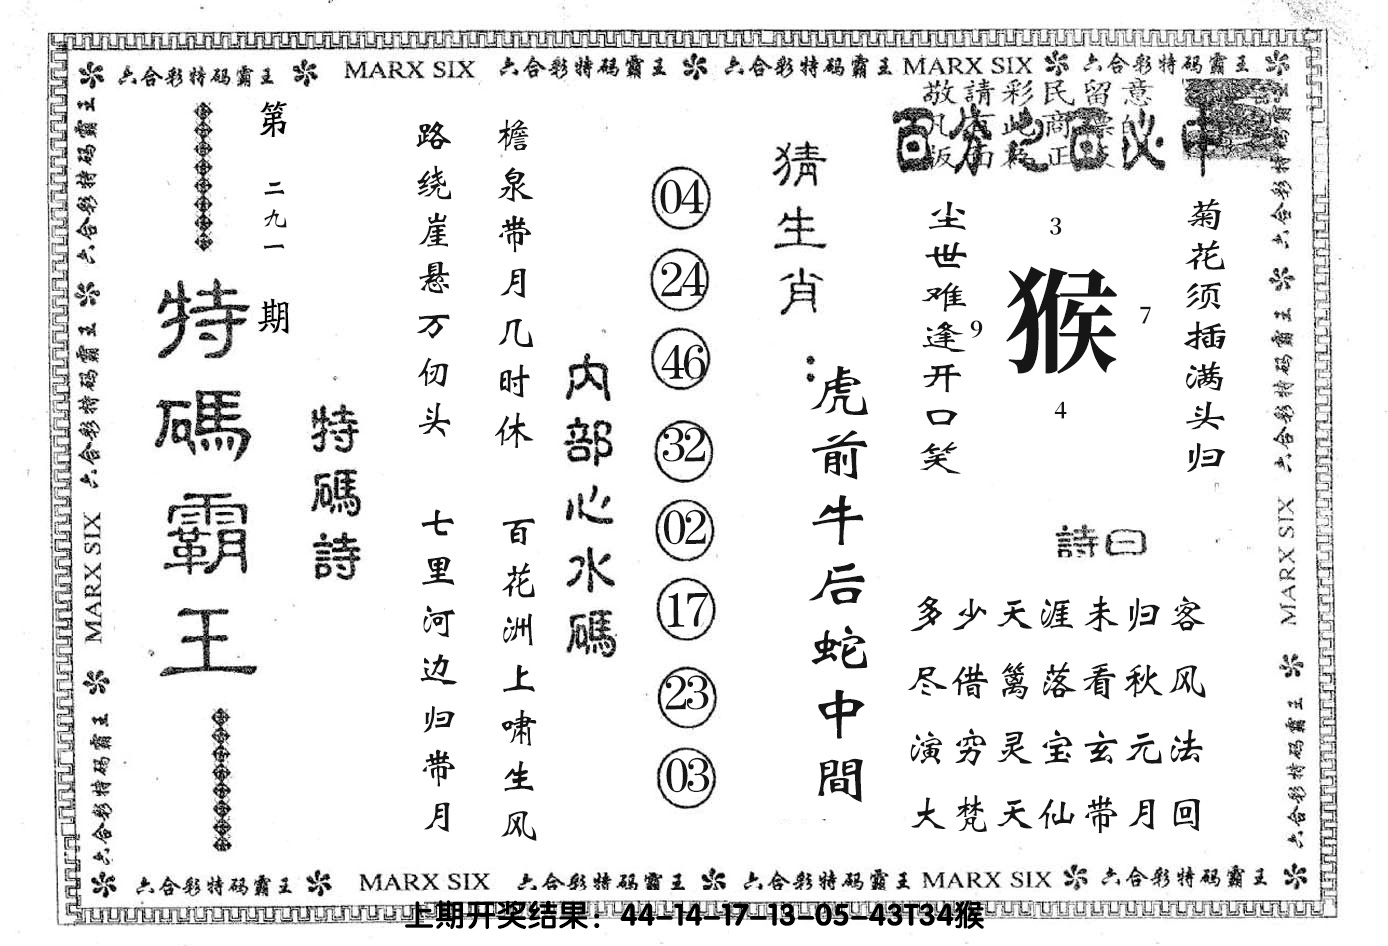 六合彩特码霸王 MARX SIX 六合彩特码霸王 六合彩特码霸王 MARX SIX 六合彩特码霸王
敬請彩民留意
百分之百必中
第二九一期
特碼霸王
特碼詩
路绕崖悬万仞头 七里河边归带月
檐泉带月几时休 百花洲上啸生风
内部心水碼
04
24
46
32
02
17
23
03
猜生肖：
虎前牛后蛇中間
尘世难逢开口笑
3
9 猴 7
4
菊花须插满头归
詩曰
多少天涯未归客
尽借篱落看秋风
演穷灵宝玄元法
大梵天仙带月回
六合彩特码霸王 MARX SIX 六合彩特码霸王
六合彩特码霸王 MARX SIX 六合彩特码霸王
六合彩特码霸王 MARX SIX 六合彩特码霸王 六合彩特码霸王 MARX SIX 六合彩特码霸王
上期开奖结果：44-14-17-13-05-43T34猴